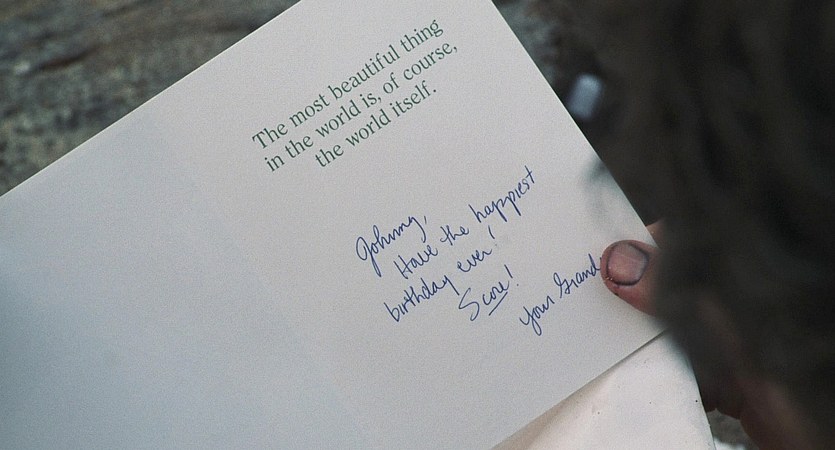 The most beautiful thing
in the world is, of course,
the world itself.
Johnny,
Have the happiest
birthday ever!
Score!
Your Grand